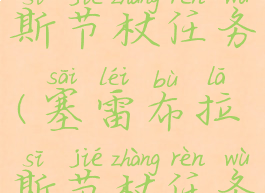 sī jié zhàng rèn wù
斯节杖任务
sāi léi bù lā
(塞雷布拉
sī jié zhàng rèn wù
斯节杖任务